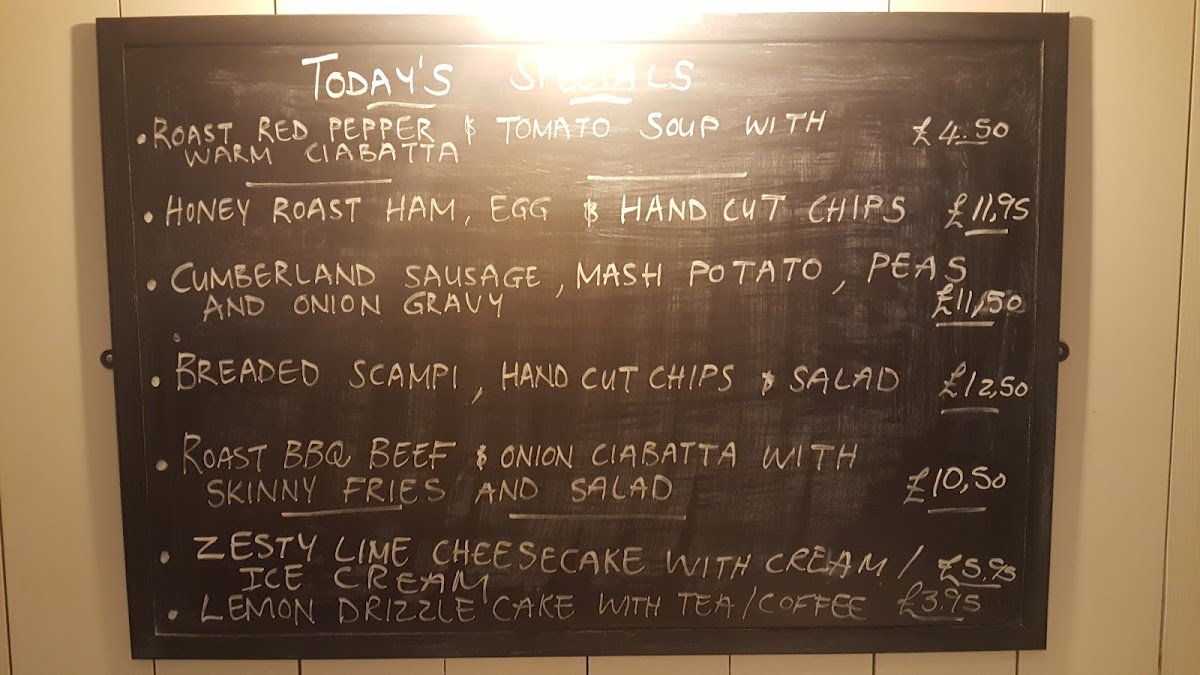 TODAY'S SPECIALS
• ROAST RED PEPPER & TOMATO SOUP WITH £4.50
WARM CIABATTA
• HONEY ROAST HAM, EGG & HAND CUT CHIPS £11,95
• CUMBERLAND SAUSAGE, MASH POTATO, PEAS
AND ONION GRAVY £11,50
• BREADED SCAMPI, HAND CUT CHIPS & SALAD £12,50
• ROAST BBQ BEEF & ONION CIABATTA WITH
SKINNY FRIES AND SALAD £10,50
• ZESTY LIME CHEESECAKE WITH CREAM / £5.95
ICE CREAM
• LEMON DRIZZLE CAKE WITH TEA/COFFEE £3.95